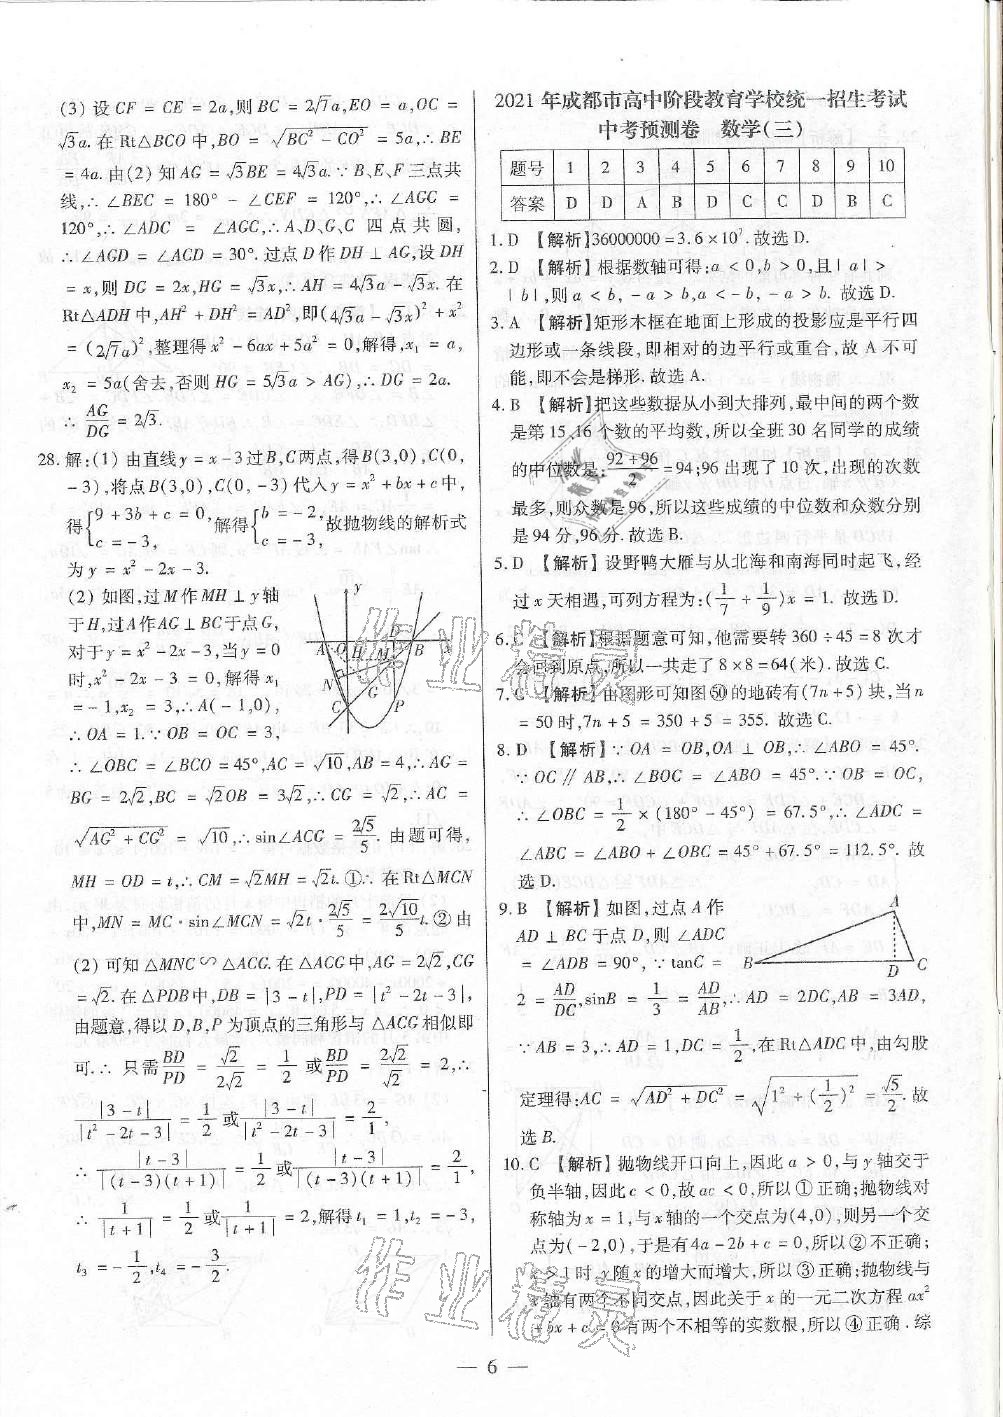 (3)设CF=CE=2a,则BC=2√7a,EO=a,OC=
√3a.在Rt△BCO中,BO=√(BC²-CO²)=5a,∴BE
=4a.由(2)知AG=√3BE=4√3a.∵B、E、F三点共
线,∴∠BEC=180°-∠CEF=120°,∴∠AGC=
120°,∴∠ADC=∠AGC,∴A、D、G、C四点共圆,
∴∠AGD=∠ACD=30°.过点D作DH⊥AG,设DH
=x,则DG=2x,HG=√3x,∴AH=4√3a-√3x.在
Rt△ADH中,AH²+DH²=AD²,即(4√3a-√3x)²+x²
=(2√7a)²,整理得x²-6ax+5a²=0,解得,x₁=a,
x₂=5a(舍去,否则HG=5√3a>AG),∴DG=2a.
∴AG/DG=2√3.
28.解:(1)由直线y=x-3过B、C两点,得B(3,0),C(0,
-3),将点B(3,0),C(0,-3)代入y=x²+bx+c中,
得{9+3b+c=0, c=-3, 解得{b=-2, c=-3, 故抛物线的解析式
为y=x²-2x-3.
(2)如图,过M作MH⊥y轴
于H,过A作AG⊥BC于点G,
对于y=x²-2x-3,当y=0
时,x²-2x-3=0,解得x₁
=-1,x₂=3,∴A(-1,0),
∴OA=1.∵OB=OC=3,
y
A
O
D
B
x
H
M
N
G
C
P
∴∠OBC=∠BCO=45°,AC=√10,AB=4,∴AG=
BG=2√2,BC=√2OB=3√2,∴CG=√2,∴AC=
√(AG²+CG²)=√10,∴sin∠ACG=2√5/5.由题可得,
MH=OD=t,∴CM=√2MH=√2t.①∴在Rt△MCN
中,MN=MC·sin∠MCN=√2t·2√5/5=2√10/5t.②由
(2)可知△MNC∽△ACG.在△ACG中,AG=2√2,CG
=√2.在△PDB中,DB=|3-t|,PD=|t²-2t-3|,
由题意,得以D、B、P为顶点的三角形与△ACG相似即
可.∴只需BD/PD=√2/2√2=1/2或BD/PD=2√2/√2=2,∴
|3-t|/|t²-2t-3|=1/2或|3-t|/|t²-2t-3|=2/1,
∴|t-3|/|(t-3)(t+1)|=1/2或|t-3|/|(t-3)(t+1)|=2/1,
∴1/|t+1|=1/2或1/|t+1|=2,解得t₁=1,t₂=-3,
t₃=-1/2,t₄=-3/2.
2021年成都市高中阶段教育学校统一招生考试
中考预测卷 数学(三)
题号 1 2 3 4 5 6 7 8 9 10
答案 D D A B D C C D B C
1.D 【解析】36000000=3.6×10⁷.故选D.
2.D 【解析】根据数轴可得:a<0,b>0,且|a|>
|b|,则a<b,-a>b,a<-b,-a>b.故选D.
3.A 【解析】矩形木框在地面上形成的投影应是平行四
边形或一条线段,即相对的边平行或重合,故A不可
能,即不会是梯形.故选A.
4.B 【解析】把这些数据从小到大排列,最中间的两个数
是第15、16个数的平均数,所以全班30名同学的成绩
的中位数是:(92+96)/2=94;96出现了10次,出现的次数
最多,则众数是96,所以这些成绩的中位数和众数分别
是94分,96分.故选B.
5.D 【解析】设野鸭大雁与从北海和南海同时起飞,经
过x天相遇,可列方程为:(1/7+1/9)x=1.故选D.
6.C 【解析】根据题意可知,他需要转360÷45=8次才
会回到原点,所以一共走了8×8=64(米).故选C.
7.C 【解析】由图形可知图㊿的地砖有(7n+5)块,当n
=50时,7n+5=350+5=355.故选C.
8.D 【解析】∵OA=OB,OA⊥OB,∴∠ABO=45°.
∵OC∥AB,∴∠BOC=∠ABO=45°.∵OB=OC,
∴∠OBC=1/2×(180°-45°)=67.5°,∴∠ADC=
∠ABC=∠ABO+∠OBC=45°+67.5°=112.5°.故
选D.
9.B 【解析】如图,过点A作
AD⊥BC于点D,则∠ADC
=∠ADB=90°,∵tanC=
A
B
D
C
2=AD/DC,sinB=1/3=AD/AB,∴AD=2DC,AB=3AD,
∵AB=3,∴AD=1,DC=1/2,在Rt△ADC中,由勾股
定理得:AC=√(AD²+DC²)=√(1²+(1/2)²)=√5/2.故
选B.
10.C 【解析】抛物线开口向上,因此a>0,与y轴交于
负半轴,因此c<0,故ac<0,所以①正确;抛物线对
称轴为x=1,与x轴的一个交点为(4,0),则另一个交
点为(-2,0),于是有4a-2b+c=0,所以②不正确;
x>1时,y随x的增大而增大,所以③正确;抛物线与
x轴有两个不同交点,因此关于x的一元二次方程ax²
+bx+c=0有两个不相等的实数根,所以④正确.综
— 6 —
作业精灵
作业精灵